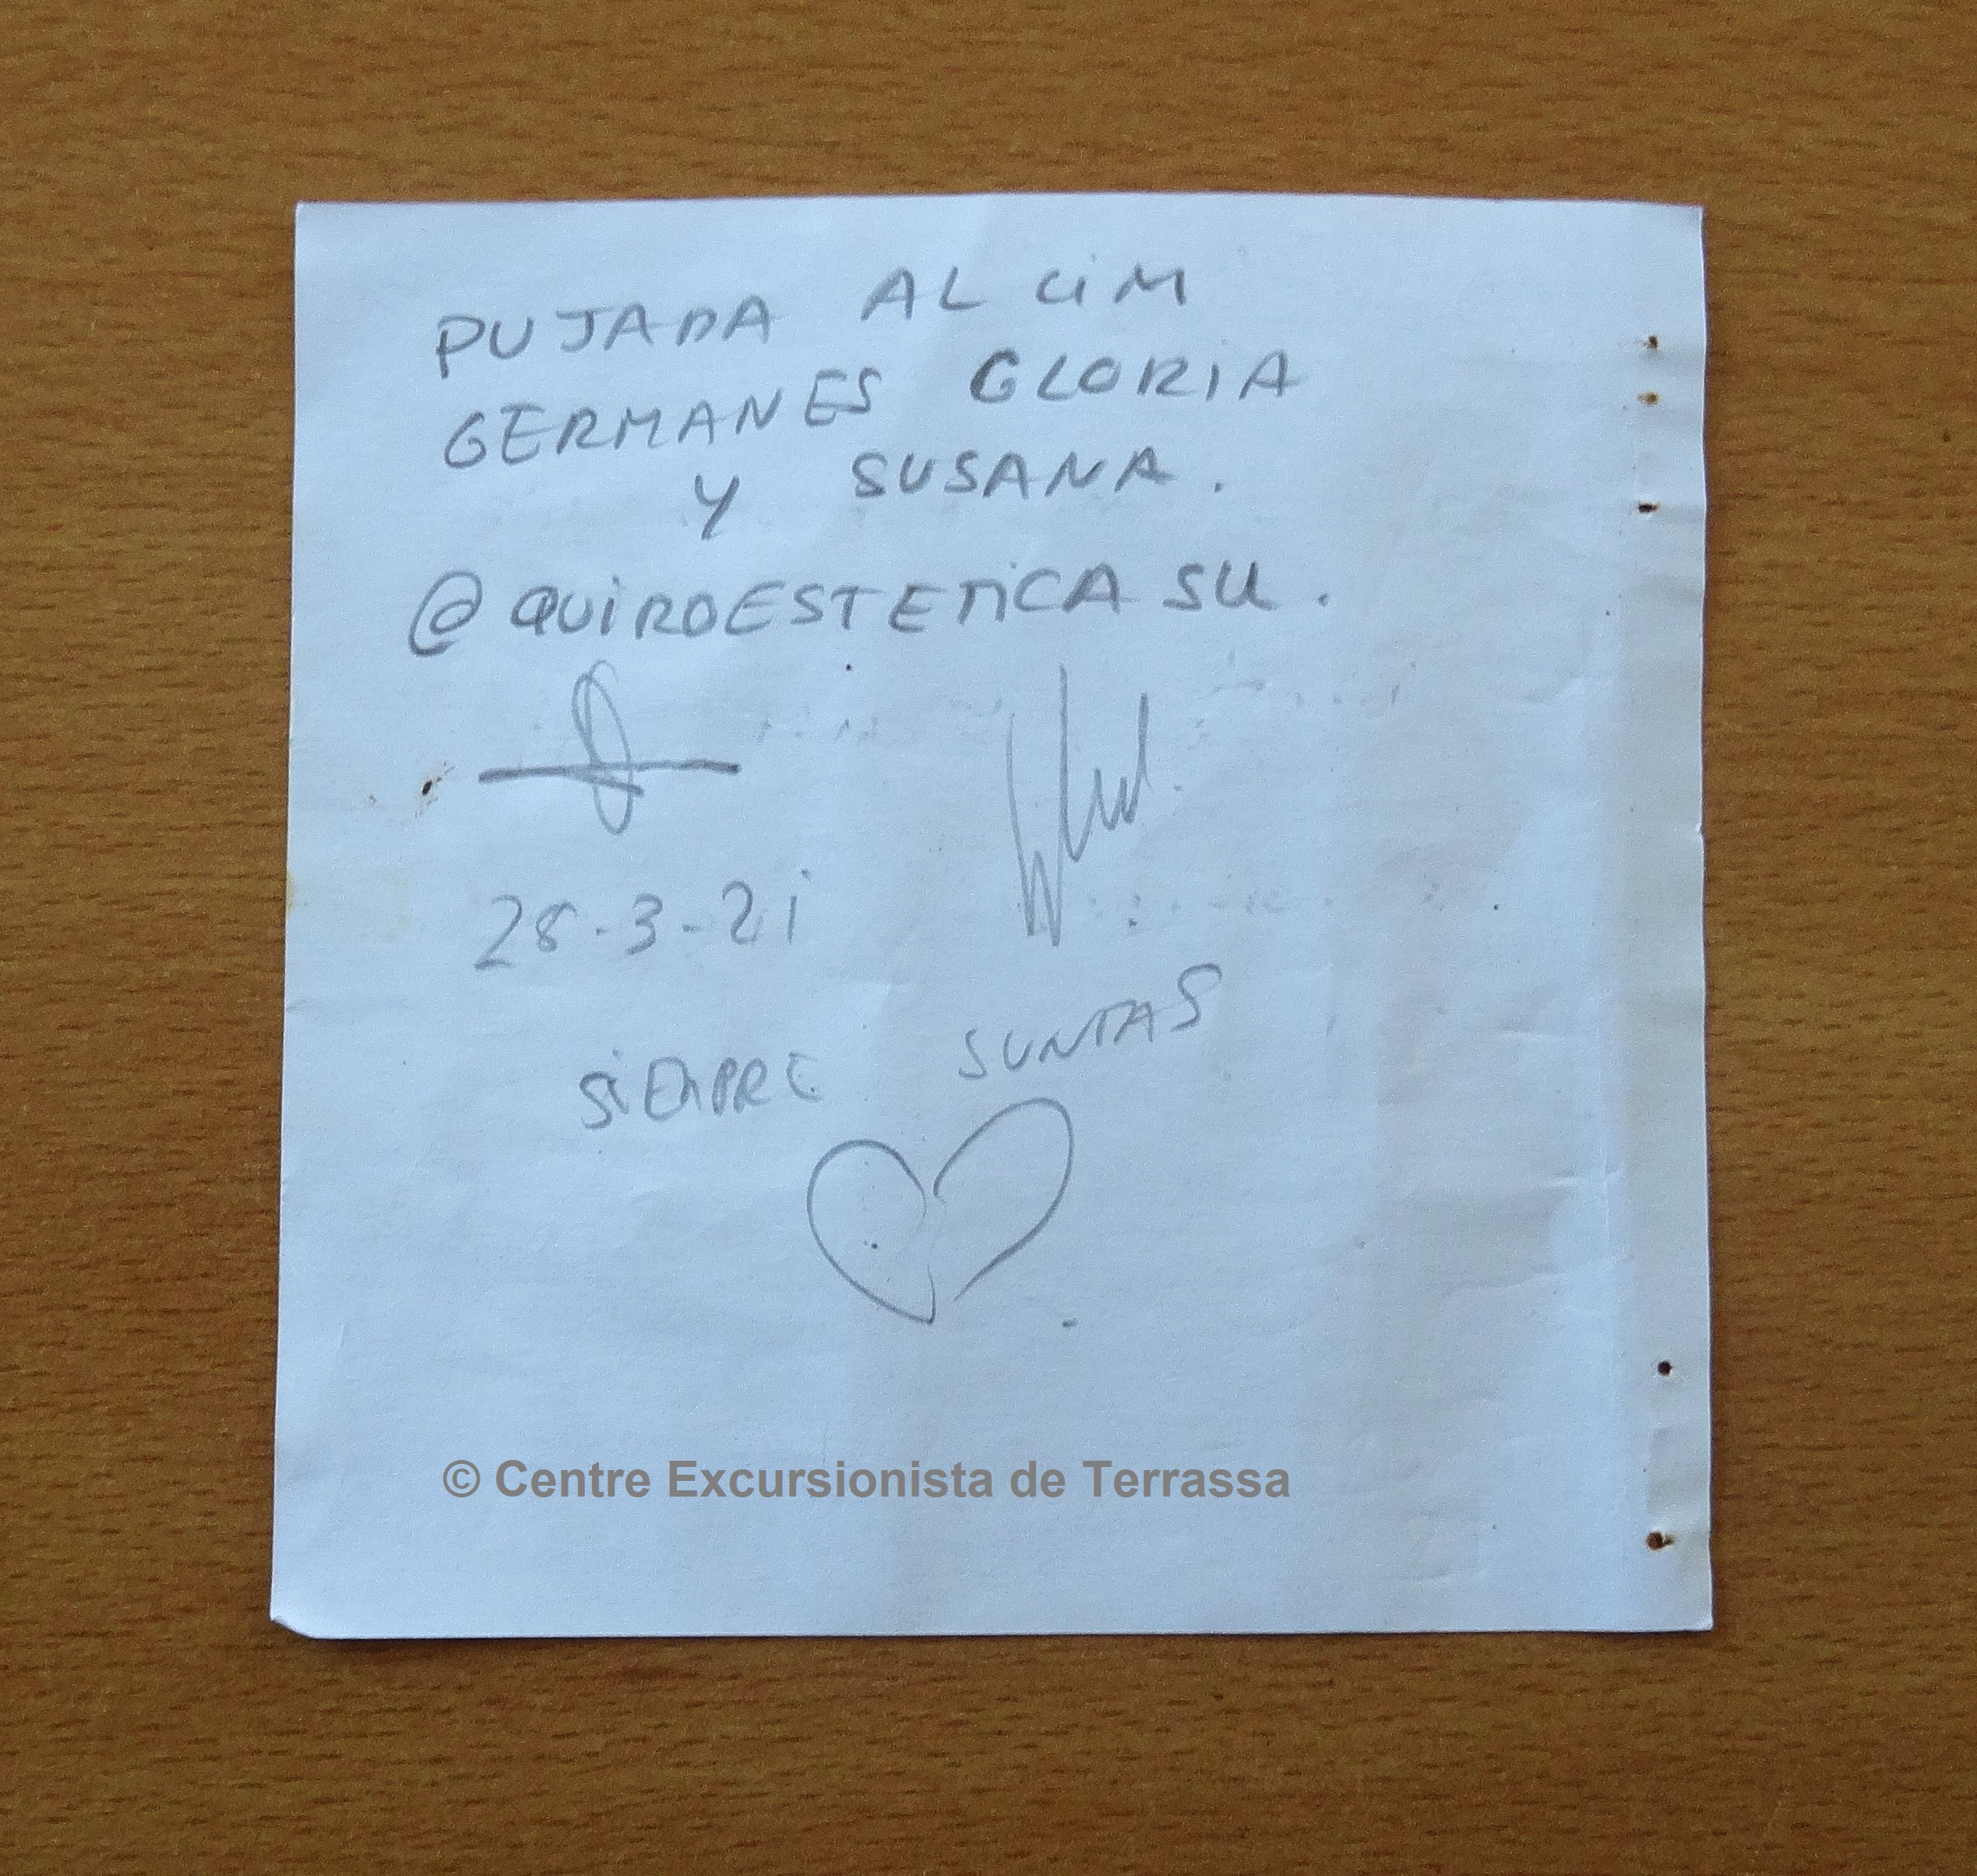 PUJADA AL CIM
GERMANES GLORIA
Y SUSANA.
@QUIROESTETICASU.
28-3-21
SIEMPRE JUNTAS
© Centre Excursionista de Terrassa